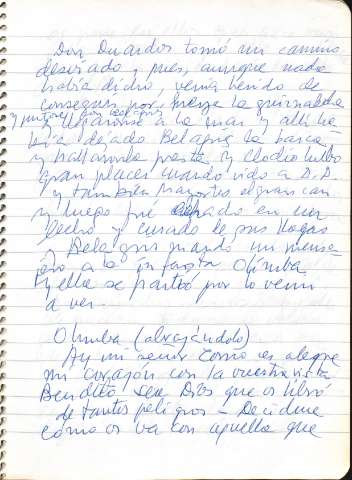 Don Duardos tomó un camino
desviado y pues, aunque nada
había dicho, venía herido de
conseguir por fuerza la guirnalda
y juntase por Belagriz
llegáronse a la mar y allí ha
bía dejado Belagriz la barca
y halláronla presta y Clodio hubo
gran placer cuando vido a D. D.
y también Mayortes el gran can
y luego fué echado en un
lecho y curado de sus llagas
y Belagriz mandó un mensa
jero a la infanta Olimba
y ella se partió por lo venir
a ver.
Olimba (abrazándolo)
Ay mi señor como es alegre
mi corazón con la vuestra vista
Bendito sea Dios que os libró
de tantos peligros – Decidme
cómo os va con aquella que